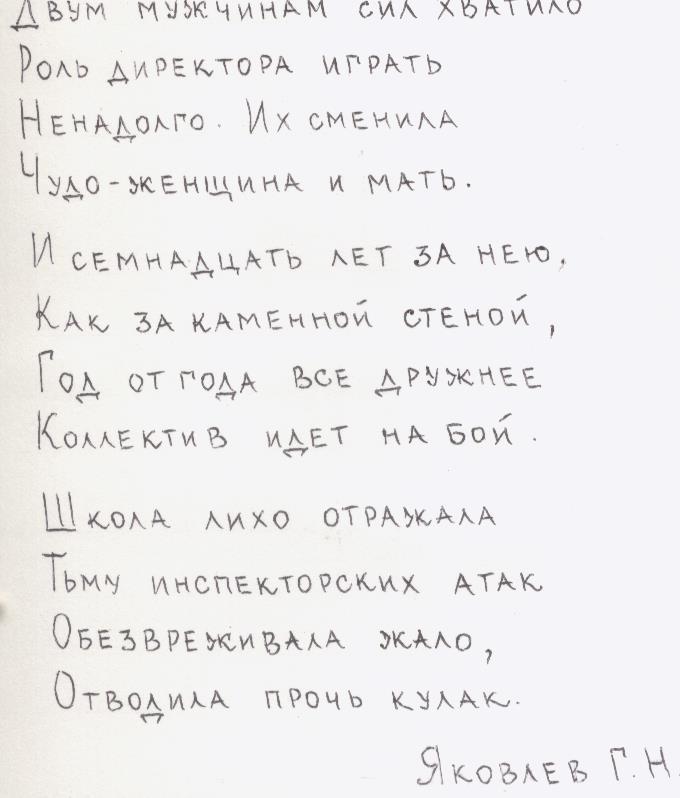 Двум мужчинам сил хватило
Роль директора играть
Ненадолго. Их сменила
Чудо-женщина и мать.
И семнадцать лет за нею,
Как за каменной стеной,
Год от года все дружнее
Коллектив идет на бой.
Школа лихо отражала
Тьму инспекторских атак
Обезвреживала жало,
Отводила прочь кулак.
Яковлев Г.Н.